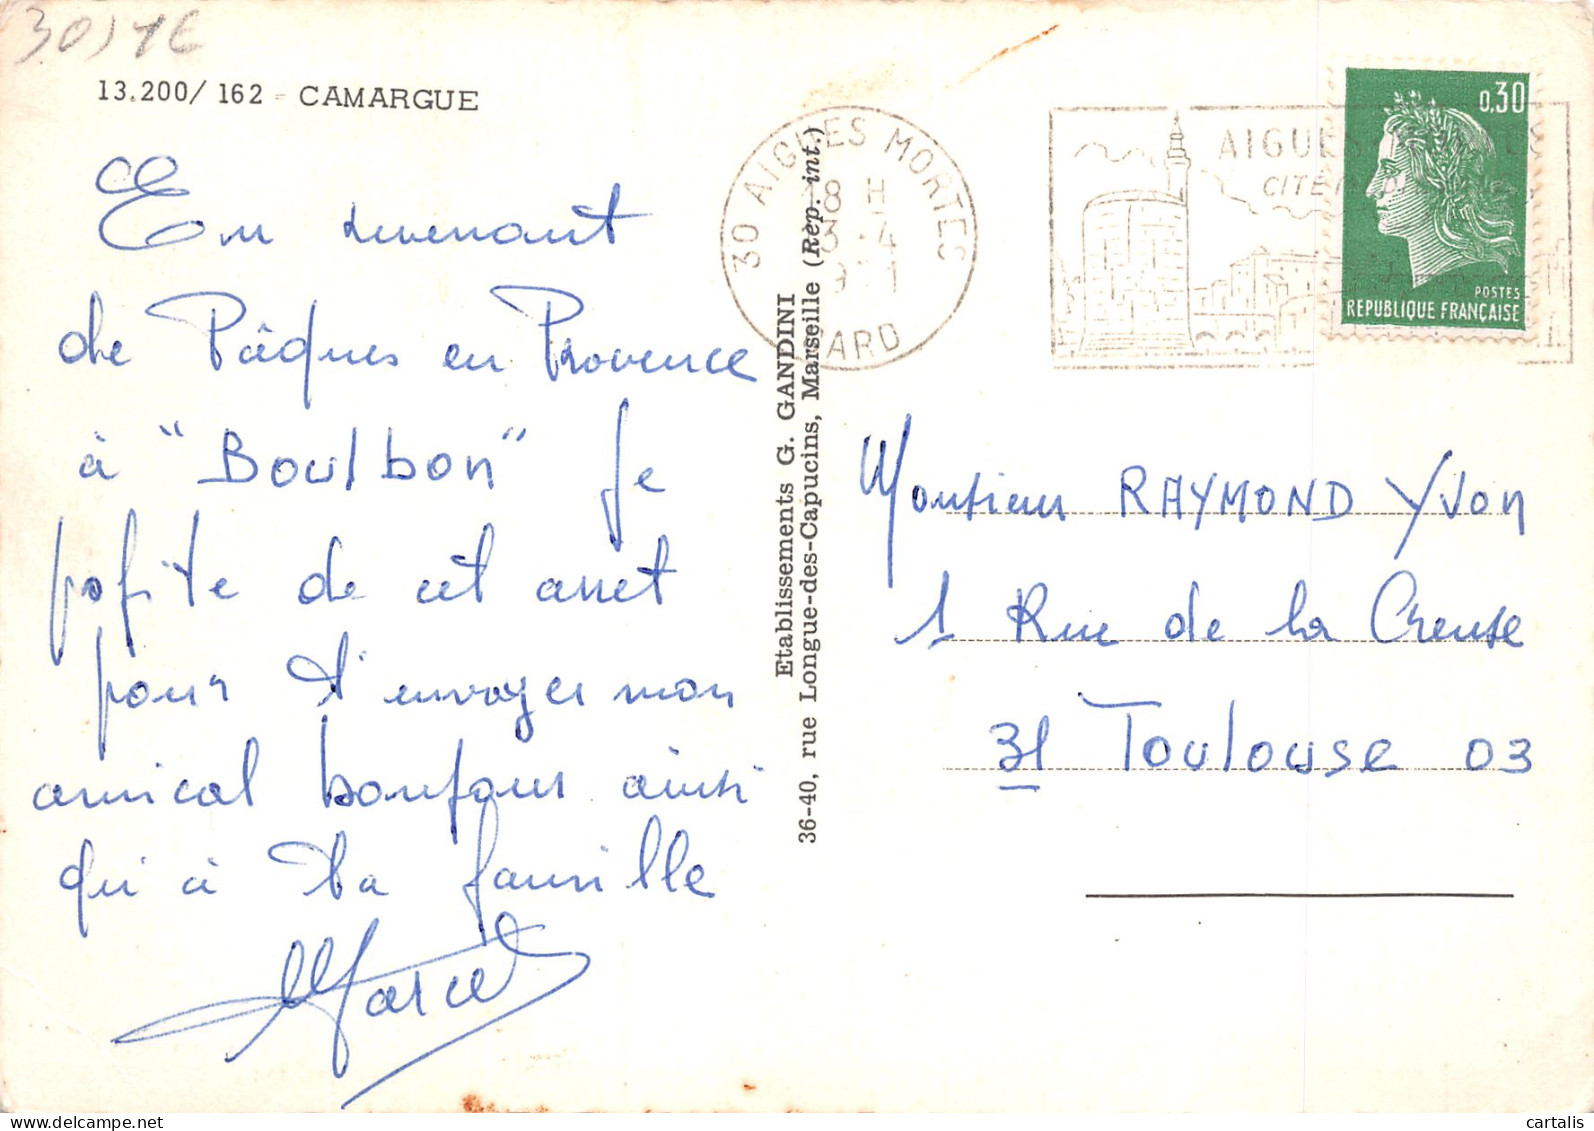 30)1€
13.200/ 162 - CAMARGUE
En revenant
de Pâques en Provence
à "Boulbon" Je
pofite de cet arret
pour t'envoyer mon
amical bonjour ainsi
qui à ta famille
Marcel
Etablissements G. GANDINI
36-40, rue Longue-des-Capucins, Marseille (Rep. int.)
30 AIGUES MORTES
18 H
3 - 4
GARD
AIGUES
CITE
0,30
POSTES
REPUBLIQUE FRANÇAISE
Monsieur RAYMOND Yvon
1 Rue de la Creuse
31 Toulouse 03
cartalis | delcampe.net